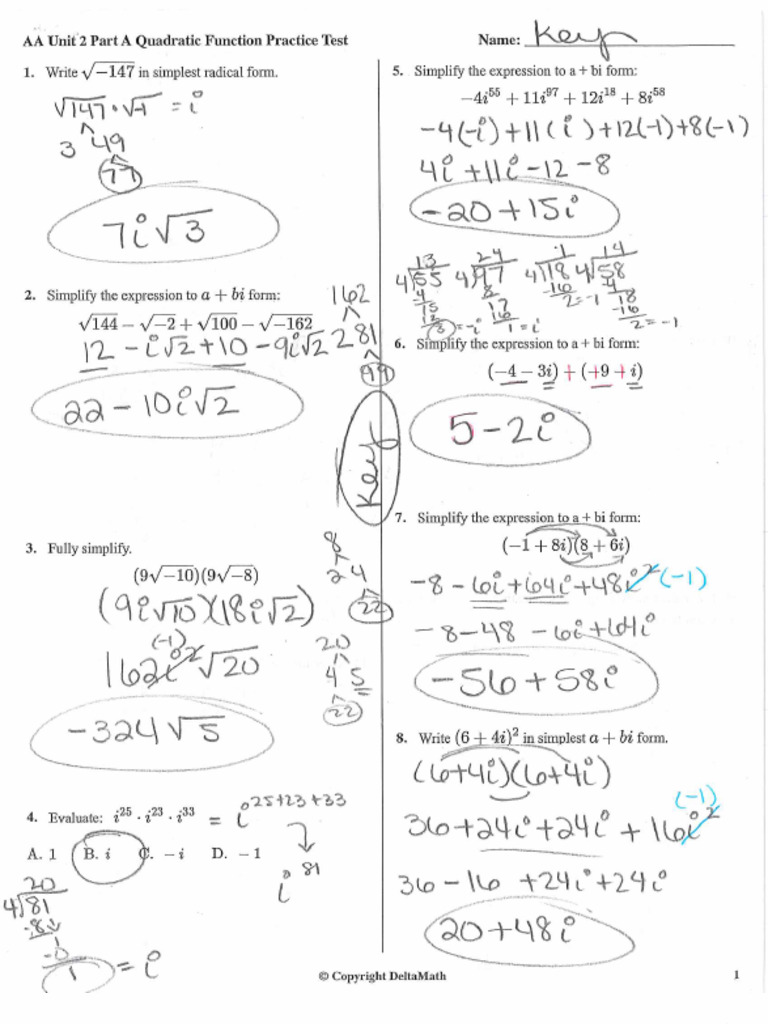 AA Unit 2 Part A Quadratic Function Practice Test
Name: Key
1. Write √−147 in simplest radical form.
√147 · √-1 = i
3 49
77
7i√3
2. Simplify the expression to a + bi form:
√144 − √−2 + √100 − √−162
12 - i√2 + 10 - 9i√2
162
2 81
99
22 - 10i√2
Key
3. Fully simplify.
(9√−10)(9√−8)
(9i√10)(18i√2)
8
2 4
22
(-1)
162i² √20
20
4 5
22
-324√5
4. Evaluate: i²⁵ · i²³ · i³³ = i²⁵⁺²³⁺³³
A. 1 B. i C. − i D. − 1
i⁸¹
20
4√81
-8↓
1
-0
1 = i
5. Simplify the expression to a + bi form:
−4i⁵⁵ + 11i⁹⁷ + 12i¹⁸ + 8i⁵⁸
-4(-i) + 11(i) + 12(-1) + 8(-1)
4i + 11i - 12 - 8
-20 + 15i
13 24 1 14
4√55 4√97 4√18 4√58
4 8 -16 4
15 17 2 = -1 18
12 16 -16
3 = -i 1 = i 2 = -1
6. Simplify the expression to a + bi form:
(−4 − 3i) + (+9 + i)
5 - 2i
7. Simplify the expression to a + bi form:
(−1 + 8i)(8 + 6i)
-8 - 6i + 64i + 48i² (-1)
-8 - 48 - 6i + 64i
-56 + 58i
8. Write (6 + 4i)² in simplest a + bi form.
(6+4i)(6+4i)
(-1)
36 + 24i + 24i + 16i²
36 - 16 + 24i + 24i
20 + 48i
© Copyright DeltaMath
1